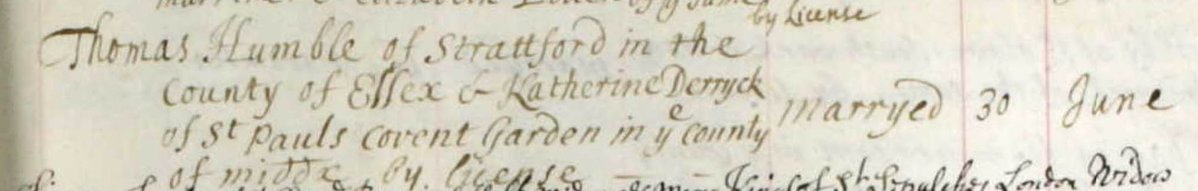 by License
Thomas Humble of Strattford in the
County of Essex & Katherine Derryck
of St Pauls Covent Garden in ye County
marryed 30 June
of middx by License
of St Sepulchres London Widow